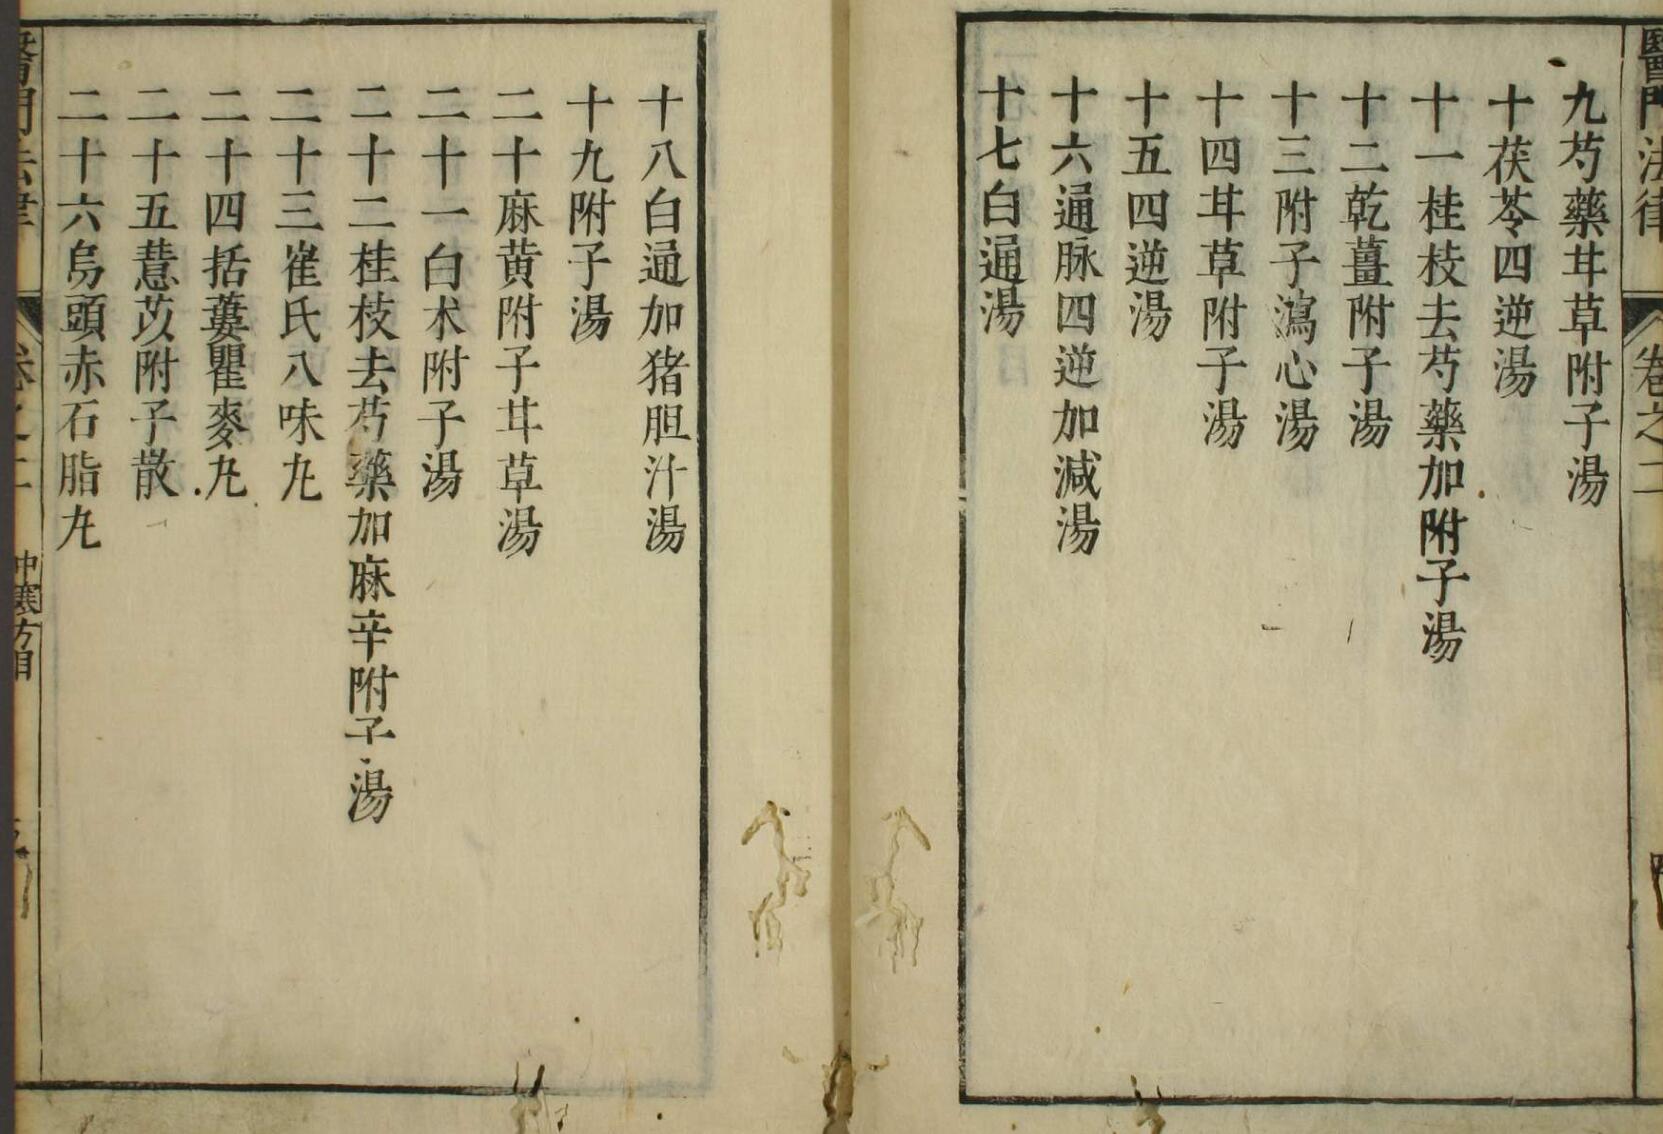 醫門法律 卷之二
九芍藥甘草附子湯
十茯苓四逆湯
十一桂枝去芍藥加附子湯
十二乾薑附子湯
十三附子瀉心湯
十四甘草附子湯
十五四逆湯
十六通脉四逆加減湯
十七白通湯
十八白通加猪胆汁湯
十九附子湯
二十麻黄附子甘草湯
二十一白朮附子湯
二十二桂枝去芍藥加麻辛附子湯
二十三崔氏八味丸
二十四括蔞瞿麥丸
二十五薏苡附子散
二十六烏頭赤石脂丸
醫門法律 卷之二 中寒方目